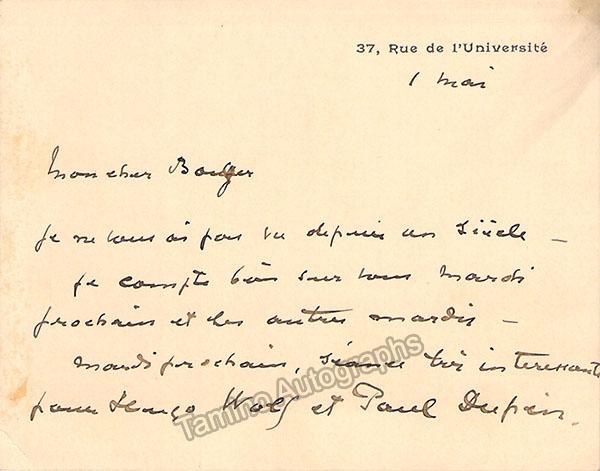 37, Rue de l'Université
1 mai
Mon cher
Je ne vous ai pas vu depuis un Siècle –
Je compte bien sur vous mardi
prochain et les autres mardis –
Mardi prochain, Séance très intéressante
pour Hugo Wolf et Paul Dupin.
Tamino Autographs